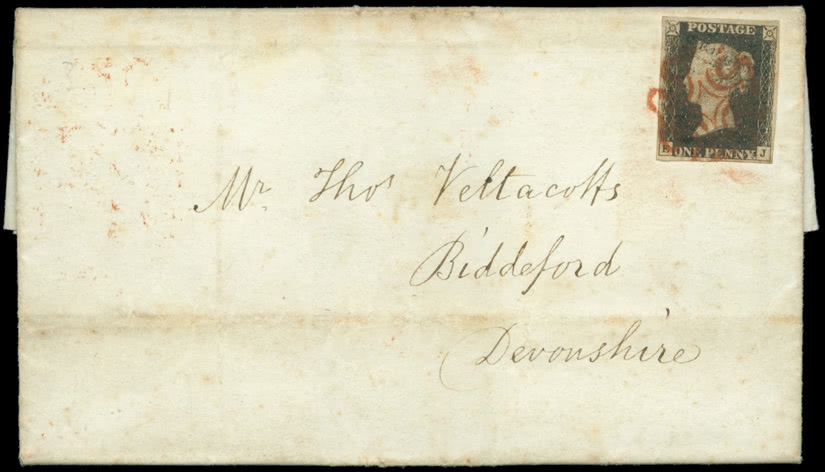 POSTAGE
E ONE PENNY J
Mr Thos Veltacotts
Biddeford
Devonshire